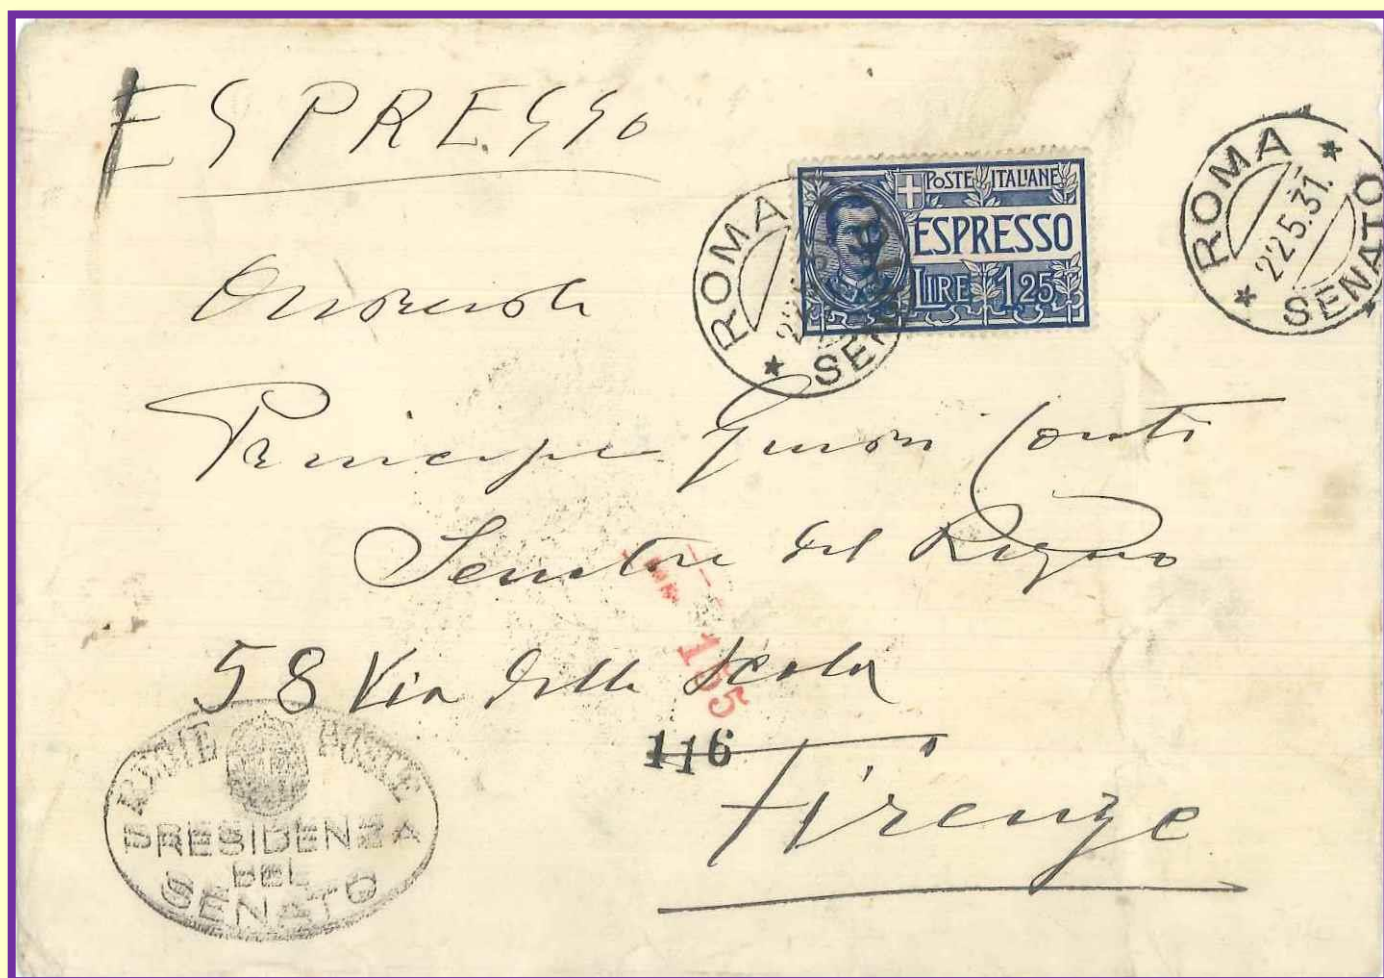 ESPRESSO
POSTE ITALIANE
ESPRESSO
LIRE 1,25
ROMA
SENATO
ROMA
22.5.31.
SENATO
Onorevole
Principe Ginori Conti
Senatore del Regno
155
58 Via della Scala
116
Firenze
REGIE POSTE
PRESIDENZA
DEL
SENATO